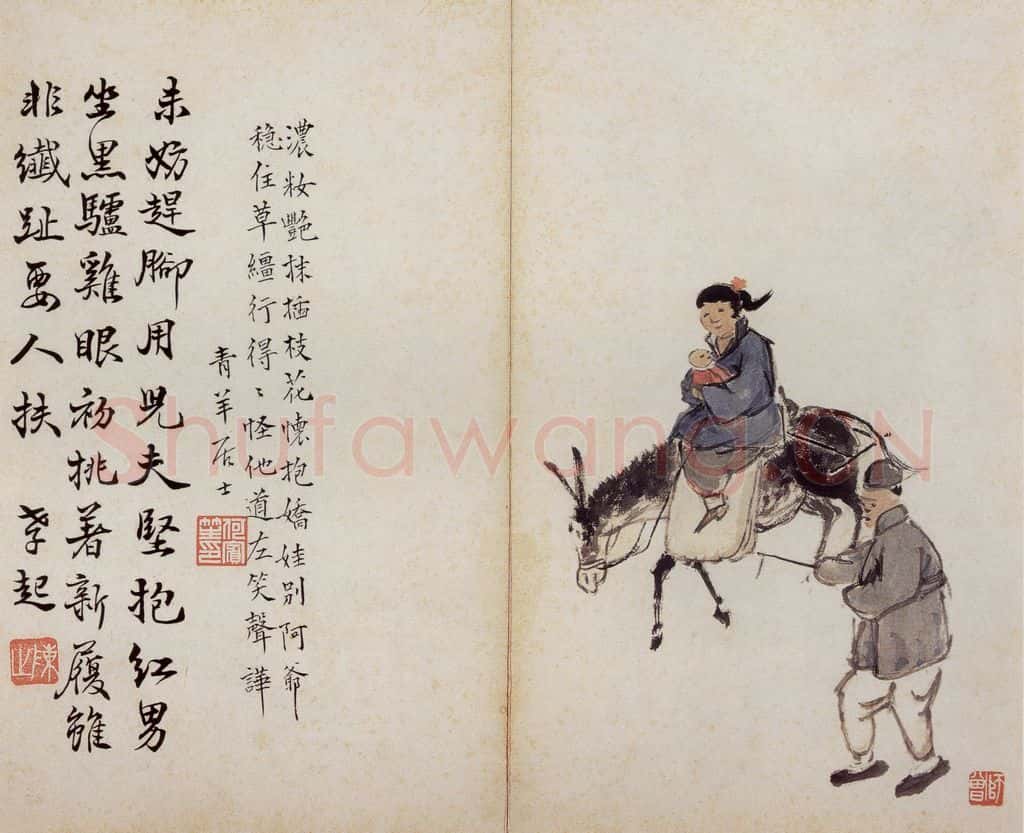 濃籹豔抹插枝花懷抱嬌娃別阿爺
稳住草繮行得〻怪他道左笑聲譁
青羊居士
何賓笙印
未妨趕腳用兒夫堅抱紅男
坐黑驢雞眼初挑著新履雖
非纖趾要人扶 孝起
師曾
Shufawang.CN